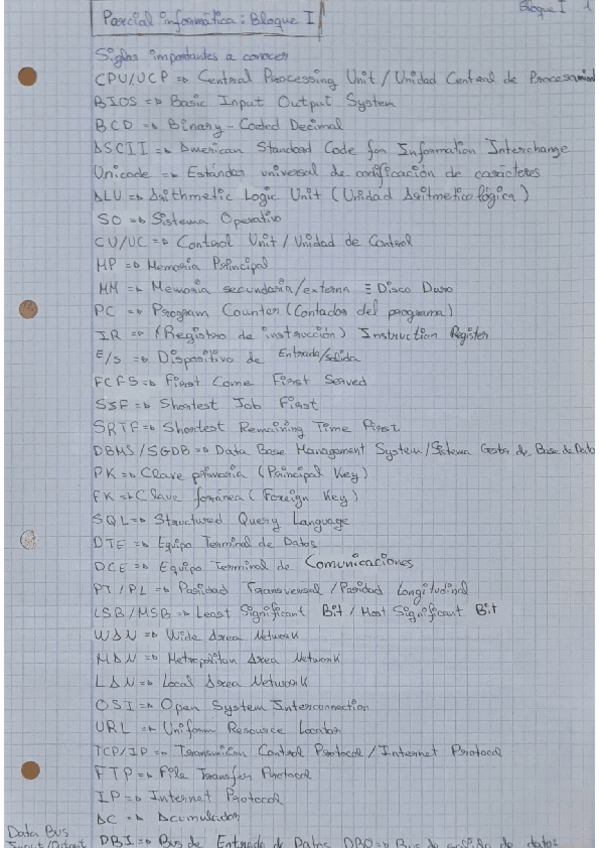 Parcial informática: Bloque I
Bloque I 1
Siglas importantes a conocer
CPU/UCP => Central Processing Unit / Unidad Central de Procesamien
BIOS => Basic Input Output System
BCD => Binary-Coded Decimal
ASCII => American Standard Code for Information Interchange
Unicode => Estándar universal de codificación de carácteres
ALU => Arithmetic Logic Unit (Unidad Aritmetico lógica)
SO => Sistema Operativo
CU/UC => Control Unit / Unidad de Control
MP => Memoria Principal
MM => Memoria secundaria/externa ≡ Disco Duro
PC => Program Counter (Contador del programa)
IR => (Registro de instrucción) Instruction Register
E/S => Dispositivo de Entrada/salida
FCFS => First Come First Served
SJF => Shortest Job First
SRTF => Shortest Remaining Time First
DBMS/SGDB => Data Base Management System/Sistema Gestor de Base de Dato
PK => Clave primaria (Principal Key)
FK => Clave foránea (Foreign Key)
SQL => Structured Query Language
DTE => Equipo Terminal de Datos
DCE => Equipo Terminal de Comunicaciones
PT/PL => Paridad Transversal / Paridad Longitudinal
LSB/MSB => Least Significant Bit / Most Significant Bit
WAN => Wide Area Network
MAN => Metropolitan Area Network
LAN => Local Area Network
OSI => Open System Interconnection
URL => Uniform Resource Locator
TCP/IP => Control Protocol / Internet Protocol
FTP => File Transfer Protocol
IP => Internet Protocol
AC => Acumulador
Data Bus
Input/Output
DBI => Bus de Entrada de Datos DBO => Bus de salida de datos